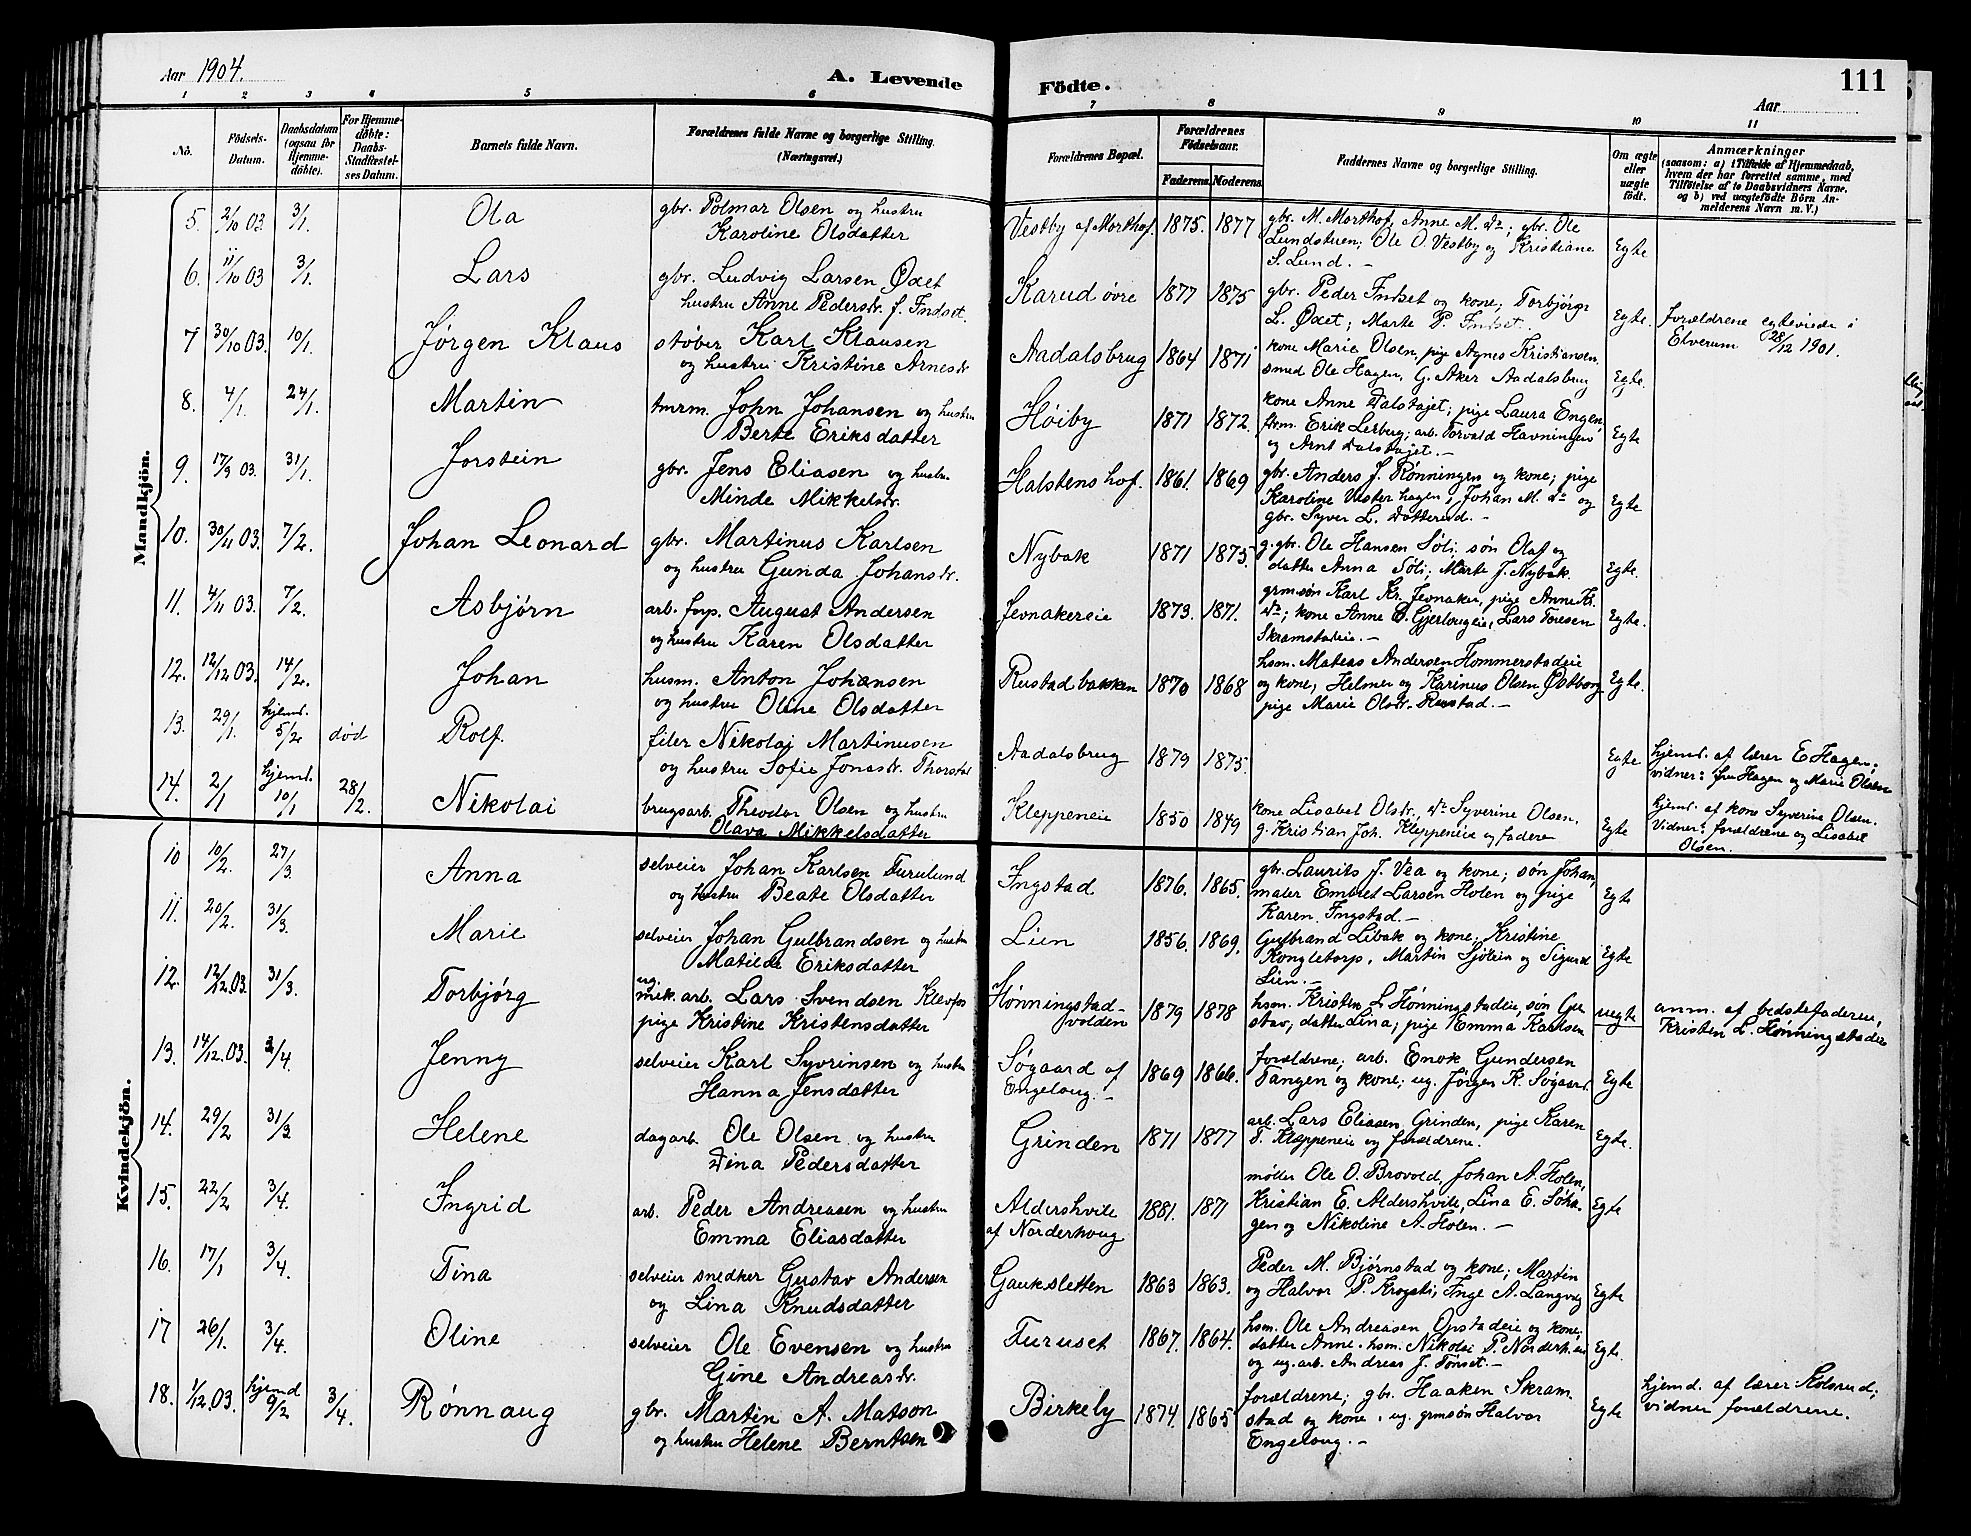 Aar 1904.
A. Levende
Födte.
111
Aar
1 2 3 4 5 6 7 8 9 10 11
No.
Födsels-Datum.
Daabsdatum (ogsaa for Hjemme-döbte).
For Hjemme-döbte: Daabs-Stadfæstel-ses Datum.
Barnets fulde Navn.
Forældrenes fulde Navne og borgerlige Stilling. (Næringsvei.)
Forældrenes Bopæl.
Forældrenes Födselsaar.
Faderens. Moderens.
Faddernes Navne og borgerlige Stilling.
Om ægte eller uægte födt.
Anmærkninger
(saasom: a) i Tilfælde af Hjemmedaab, hvem der har forrettet samme, med Tilföielse af to Daabsvidners Navne. og b) ved uægtefödte Börn An-melderens Navn m. V.)
Mandkjön.
5. 2/10 03. 3/1. Ola
gbr. Polmar Olsen og hustru
Karoline Olsdatter
Vestby af Morthof. 1875. 1877
gbr. M. Morthof, Anne M. do; gbr. Ole
Lundstuen; Ole O. Vestby og Kristiane
S. Lund. —
Egte
6. 11/10 03 3/1. Lars
gbr. Ludvig Larsen Øxet
hustru Anne Pedersdr. f. Indset.
Karud øvre 1877 1875
gbr. Peder Indset og kone; Torbjörg
L. Øxet; Marte P. Indset.
Egte.
forældrene egteviede i
Elverum 28/12 1901.
7 30/10 03. 10/1. Jørgen Klaus
støber Karl Klausen
og hustru Kristine Arnesdr.
Aadalsbrug 1864 1871
kone Marie Olsen, pige Agnes Kristiansen,
smed Ole Hagen, G. Aker Aadalsbrug
Egte.
8. 4/1. 24/1. Martin
tmrm. John Johansen og hustru
Berte Eriksdatter
Høiby 1871 1872.
kone Anne Dalstøjet; pige Laura Engen,
Erik Lerberg; arb. Torvald Havningen
og Arnt Dalstøjet. —
Egte
9. 17/9 03. 31/1. Jorstein
gbr. Jens Eliasen og hustru
Minde Mikkelsdr.
Halstenshof. 1861. 1869
gbr. Anders J. Rønningen og kone; pige
Karoline Vesterhagen, Johan M. do og
gbr. Syver L. Dotterud. —
Egte
10. 30/11 03. 7/2. Johan Leonard
gbr. Martinus Karlsen
og hustru Gunda Johansdr.
Nybak 1871 1875
g. gbr. Ole Hansen Söli, søn Olaf og
datter Anna Söli; Marte J. Nybak.
Egte.
11. 4/11 03. 7/2. Asbjørn
arb. forp. August Andersen
og hustru Karen Olsdatter
Jevnakereie 1873. 1871.
grmsøn Karl Kr. Jevnaker, pige Anne Kr.
do; kone Anne O. Gjerlougeie, Lars Toresen
Skramstadeie. —
Egte.
12. 12/12 03. 14/2. Johan
husm. Anton Johansen
og hustru Oline Olsdatter
Rustadbakken 1870 1868
hsm. Mateas Andersen Hommerstadeie
og kone; Helmer og Karinus Olsen Østborg
pige Marie Olsdr. Rustad. —
Egte.
13. 29/1. hjemd. 5/2 død Rolf.
filer Nikolai Martinusen
og hustru Sofie Jonasdr. Thorstad
Aadalsbrug 1879 1875.
Egte
hjemd. af lærer E. Hagen;
vidner: fru Hagen og Marie Olsen
14. 2/1 hjemd. 10/1 28/2. Nikolai
brugsarb. Theodor Olsen og hustru
Olava Mikkelsdatter
Kleppeneie 1850 1849
kone Lisabet Olsdr., do Syverine Olsen.
g. Kristian Joh. Kleppeneie og fadere
Egte
hjemd. af kone Syverine Olsen.
Vidner: forældrene og Lisabet
Olsen.
Kvindekjön.
10 10/2. 27/3. Anna
selveier Johan Karlsen Furulund
og hustru Beate Olsdatter
Ingstad 1876. 1865.
gbr. Laurits J. Vea og kone; søn Johan,
maler Embret Larsen Holen og pige
Karen Ingstad. —
Egte
11. 20/2. 31/3. Marie
selveier Johan Gulbrandsen og hustru
Matilde Eriksdatter
Lien 1856. 1869.
Gulbrand Libak og kone, Kristine
Kongletorp, Martin Sjölien og Sigurd
Lien. —
Egte
12. 12/12.03. 31/3. Torbjørg
ug. mek. arb. Lars Svendsen Klevfos
pige Kristine Kristensdatter
Hønningstad-
volden 1879 1878
hsm. Kristen L. Hønningstadeie, søn Gu-
stav, datter Lina, pige Emma Karlsen
uegte
anm. af bedstefaderen,
Kristen L. Hønningstadeie
13. 14/12.03. 3/4. Jenny
selveier Karl Syvrinsen og hustru
Hanna Jensdatter
Søgaard af
Engeloug. — 1869 1866.
forældrene; arb. Enok Gundersen
Tangen og kone; ug. Jørgen K. Søgaard.
Egte
14. 29/2 31/3 Helene
dagarb. Ole Olsen og hustru
Dina Pedersdatter
Grinden 1871 1877
arb. Lars Eliasen Grinden, pige Karen
T. Kleppeneie og forældrene.
Egte.
15. 22/2 3/4. Ingrid
arb. Peder Andreasen og hustru
Emma Eliasdatter
Aldershvile
af Norderhoug 1881. 1871
møller Ole O. Brovold, Johan A. Holen,
Kristian E. Aldershvile, Lina E. Søha-
gen og Nikoline A. Holen. —
Egte
16. 17/1 3/4. Tina
selveier snedker Gustav Andersen
og Lina Knudsdatter
Gauksletten 1863 1863.
Peder M. Bjørnstad og kone; Martin
og Halvor P. Krogsti; Inge A. Langveg
Egte
17 26/1. 3/4. Oline
selveier Ole Evensen og hustru
Gine Andreasdr.
Furuset 1867. 1864.
hsm. Ole Andreasen Opstadeie og kone,
datter Anne. hsm. Nikolai P. Norderh.eie
og ug. arb. Andreas J. Tønset. —
Egte.
18. 1/12.03. hjemd 9/2 3/4. Rønnaug
gbr. Martin A. Matson
og hustru Helene Berntsen
Birkely 1874. 1865
forældrene; gbr. Haaken Skram-
stad og kone, ug. grmsøn Halvor
Engeloug. —
Egte
hjemd. af lærer Kolsrud;
vidner forældrene.